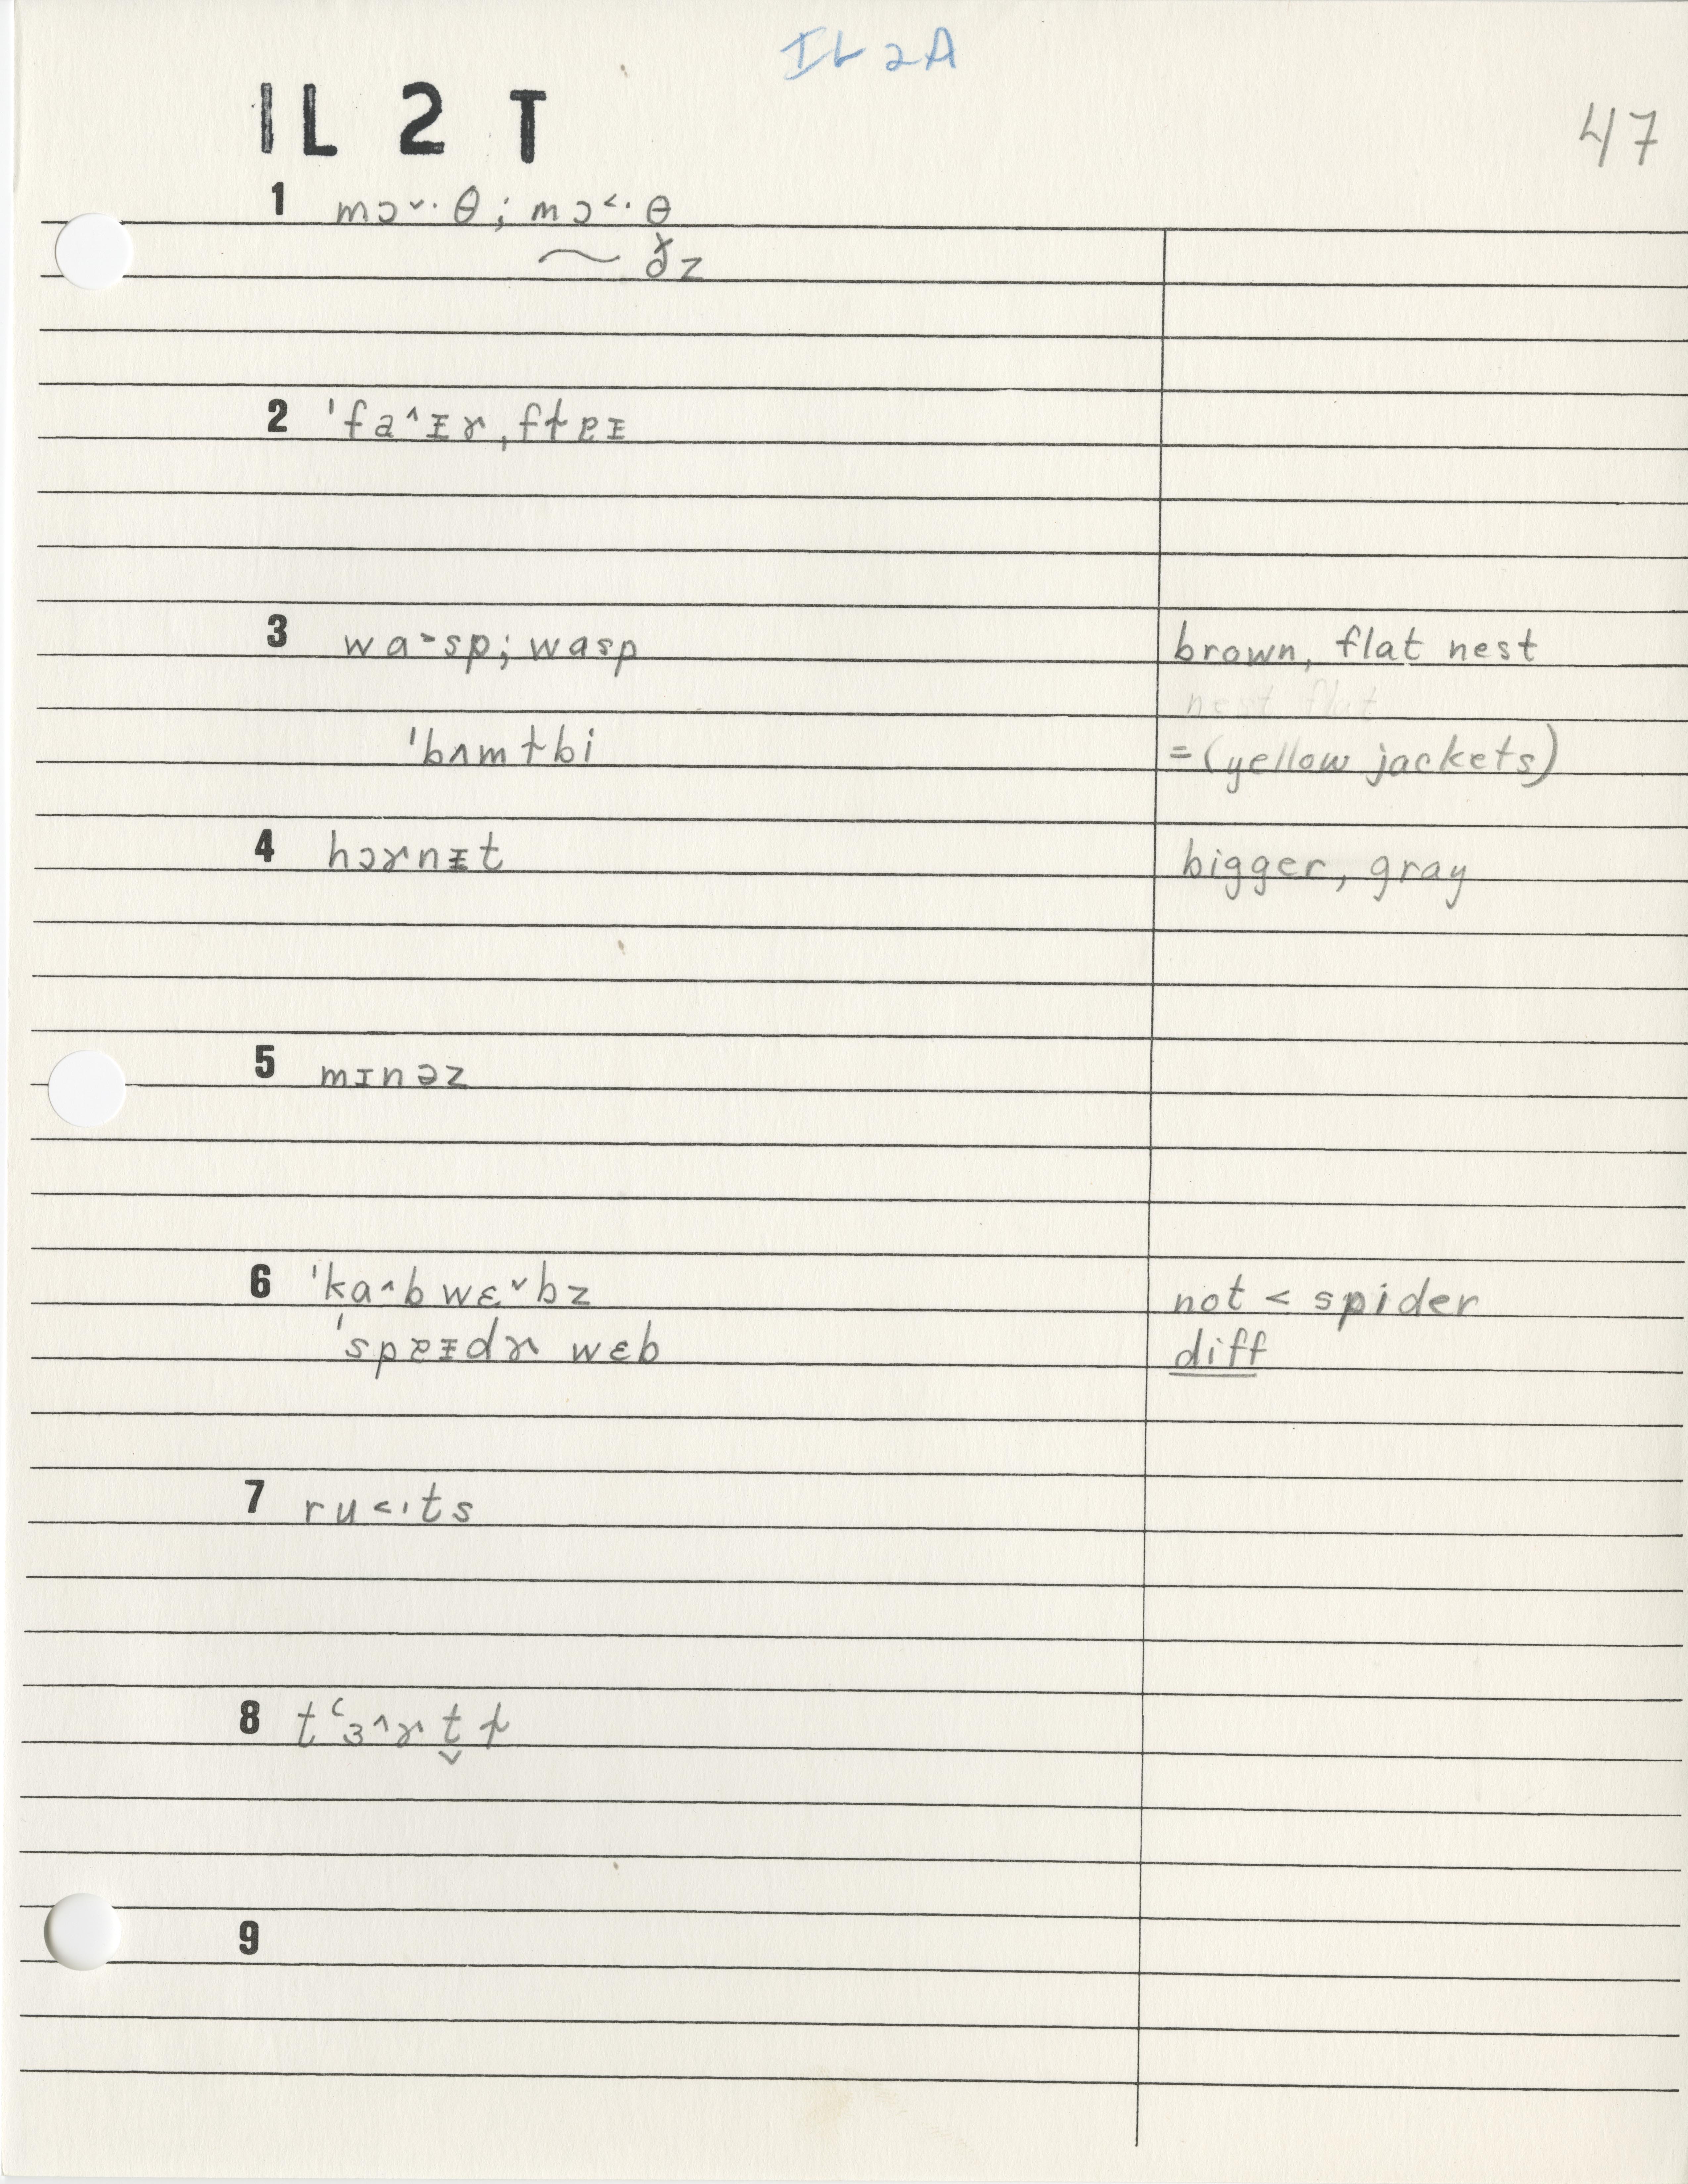 IL 2A
IL 2 T
47
1 mɔ˅· θ ; mɔ˂· θ
⁓ ð̵z
2 ˈfa˄ᵻɚ ˌflɐᵻ
3 wɑ˃sp ; wɑsp brown, flat nest
nest flat
ˈbʌmɫbi =(yellow jackets)
4 hɔɚnᵻt bigger, gray
5 mɪnəz
6 ˈkɑ˄b wɛ˅bz not < spider
ˈspɐᵻdɚ wɛb diff
7 ru˂·ts
8 tʻɜ˄ɚt̬ɫ
9